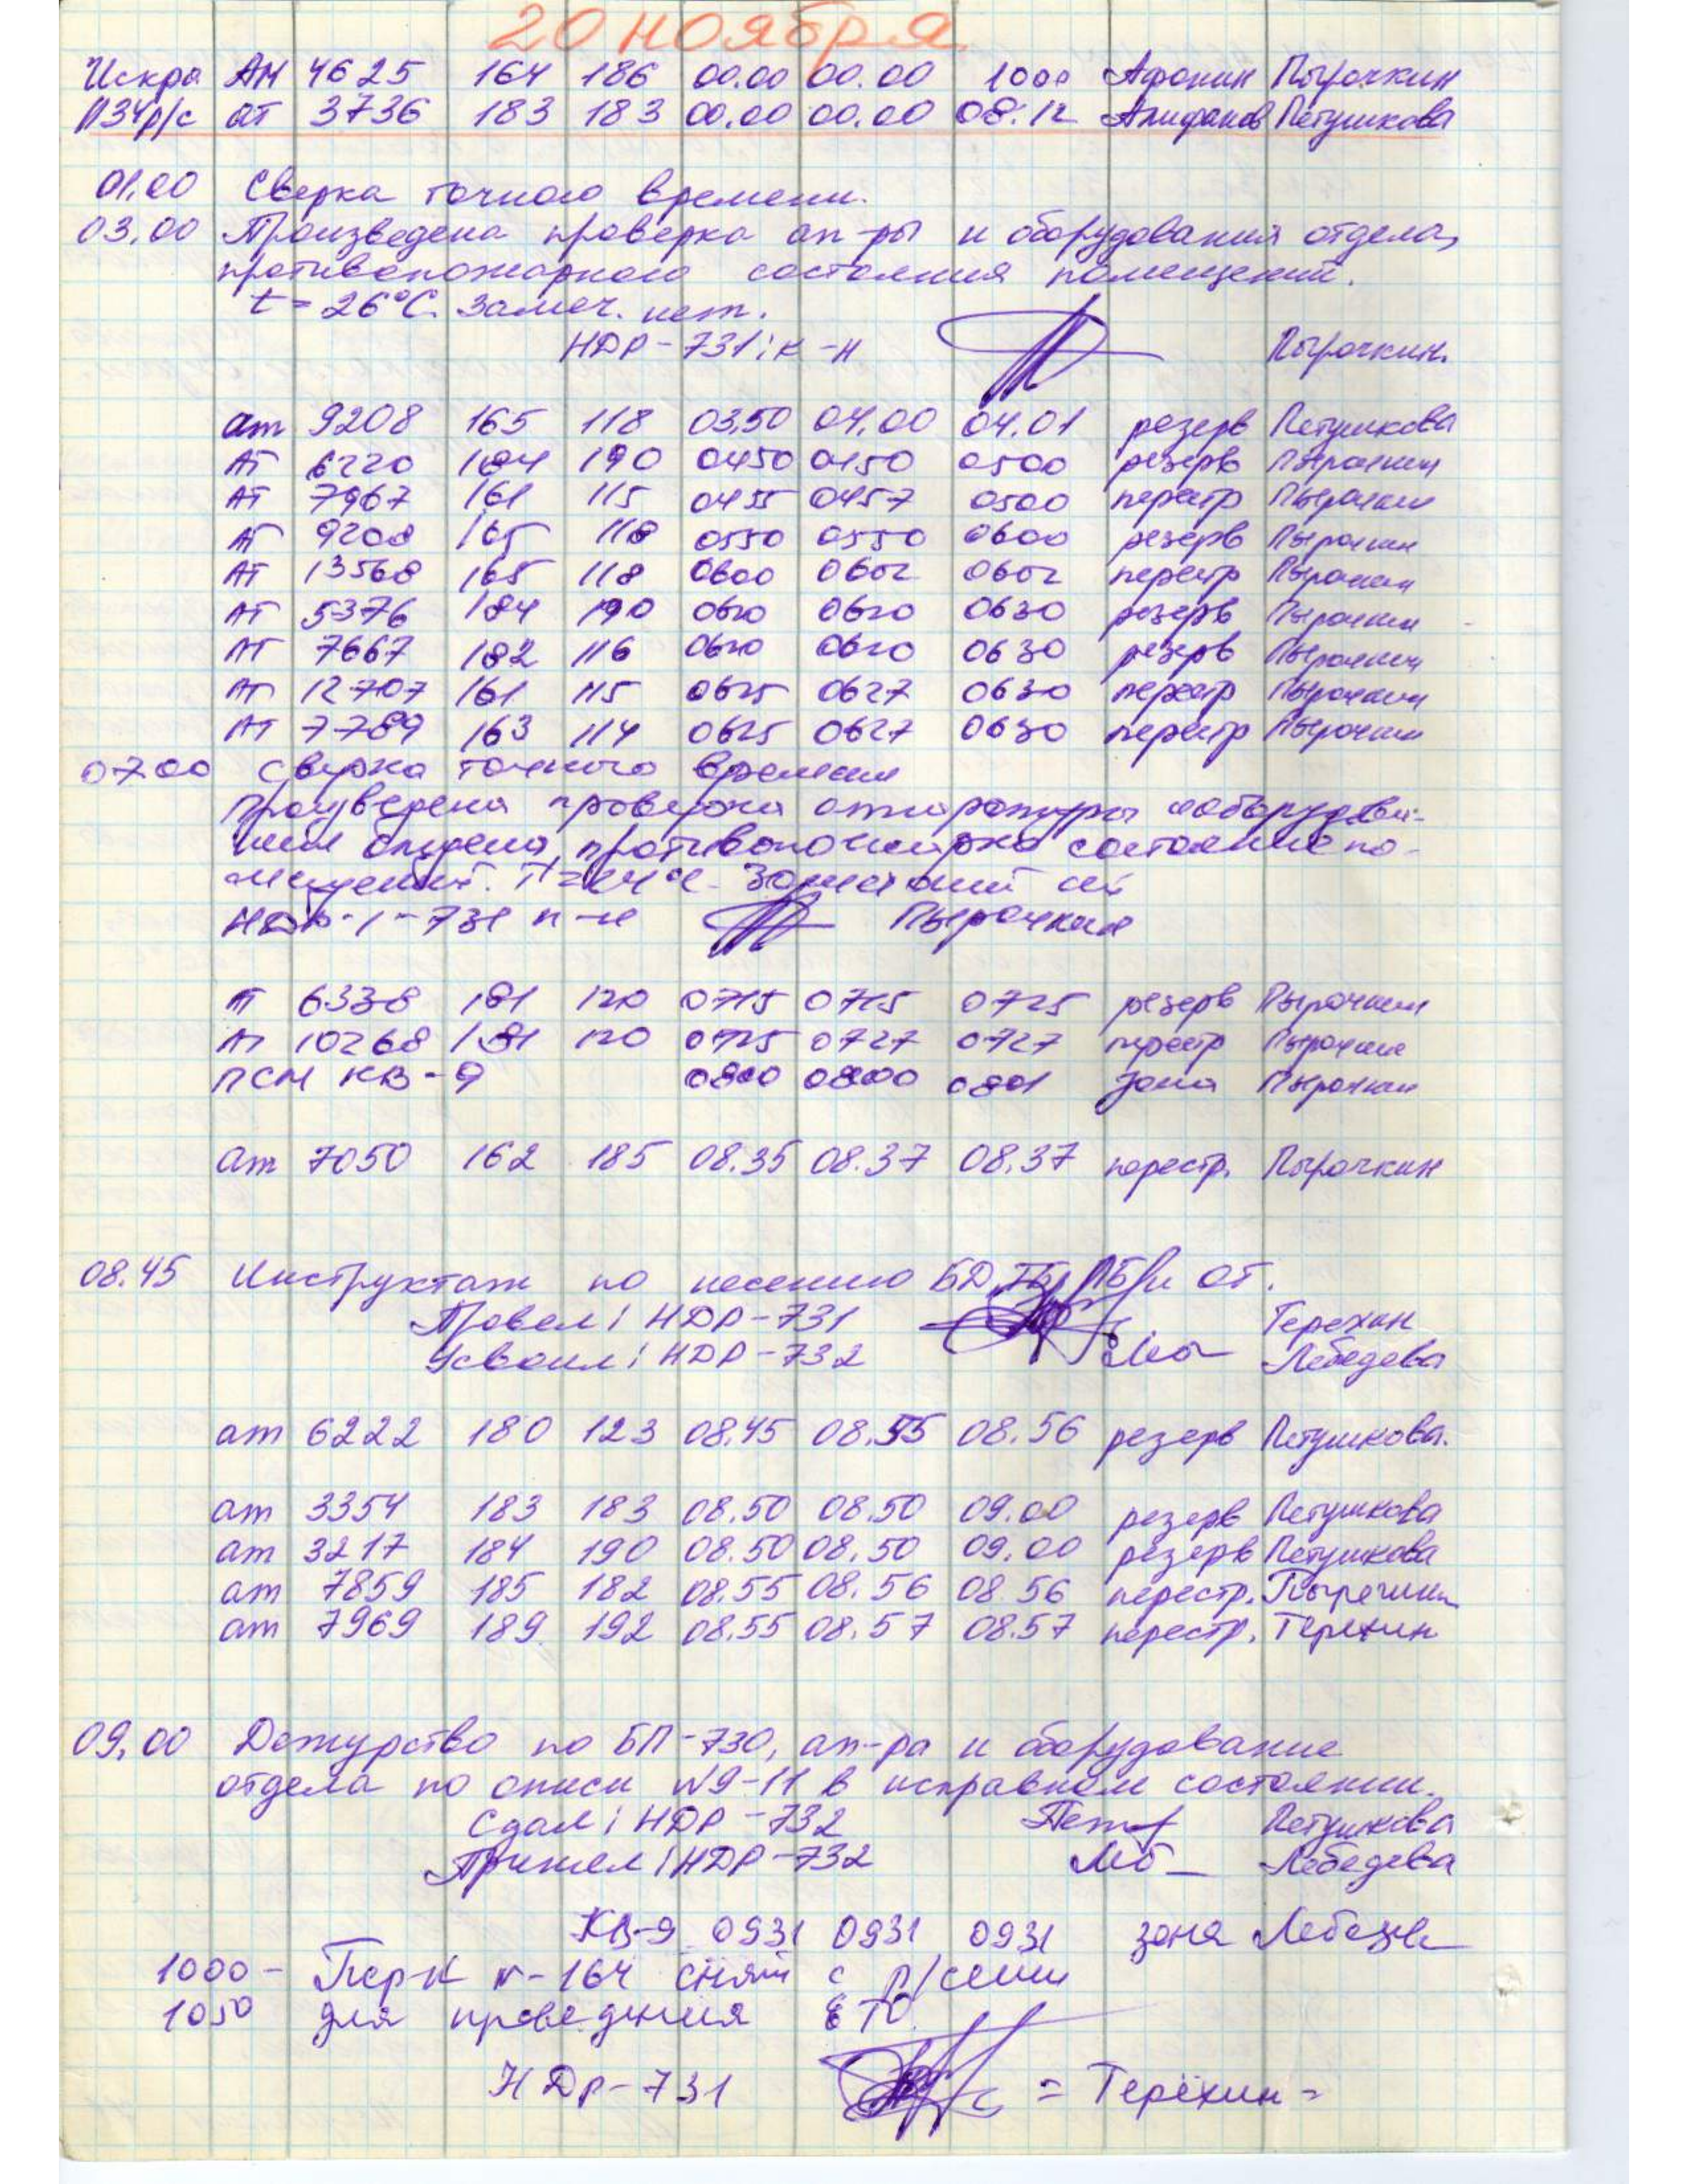 20 ноября
Искра АМ 4625 164 186 00.00 00.00 1000 Афонин Пырочкин
ПЗЧ р/с ат 3736 183 183 00.00 00.00 08.12 Алифанов Петушкова
01.00 Сверка точного времени.
03.00 Произведена проверка ап-ры и оборудования отдела,
противопожарного состояния помещений.
t = 26°C. Замеч. нет.
НДР-731: к-н Пырочкин.
ат 9208 165 118 03.50 04.00 04.01 резерв Петушкова
АТ 6220 184 190 0450 0450 0500 резерв Пырочкин
АТ 7967 161 115 0455 0457 0500 перестр Пырочкин
АТ 9208 165 118 0550 0550 0600 резерв Пырочкин
АТ 13568 165 118 0600 0602 0602 перестр Пырочкин
АТ 5376 184 190 0620 0620 0630 резерв Пырочкин
АТ 7667 182 116 0620 0620 0630 резерв Пырочкин
АТ 12707 161 115 0625 0627 0630 перестр Пырочкин
АТ 7789 163 114 0625 0627 0630 перестр Пырочкин
07.00 Сверка точного времени
Произведена проверка аппаратуры и оборудова-
ния отдела, противопожарно состояние по-
мещений. Замечаний нет
НДР-1-731 к-н Пырочкин
АТ 6338 181 120 0715 0715 0725 резерв Пырочкин
АТ 10268 181 120 0725 0727 0727 перестр Пырочкин
ПСМ КВ-9 0800 0800 0801 зона Пырочкин
ат 7050 162 185 08.35 08.37 08.37 перестр. Пырочкин
08.45 Инструктаж по несению БД, ТБ, ПБ и ОТ.
Провел: НДР-731 Терехин
Усвоил: НДР-732 Лебедева
ат 6222 180 123 08.45 08.55 08.56 резерв Петушкова.
ат 3354 183 183 08.50 08.50 09.00 резерв Петушкова
ат 3217 184 190 08.50 08.50 09.00 резерв Петушкова
ат 7859 185 182 08.55 08.56 08.56 перестр. Пырочкин
ат 7969 189 192 08.55 08.57 08.57 перестр. Терехин
09.00 Дежурство по БП-730, ап-ра и оборудование
отдела по описи №9-11 в исправном состоянии.
Сдал: НДР-732 Петушкова
Принял: НДР-732 Лебедева
КВ-9 0931 0931 0931 зона Лебедев
1000- Пер-к №-164 снят с р/сети
1050 для проведения ЕТО.
НДР-731 = Терёхин =